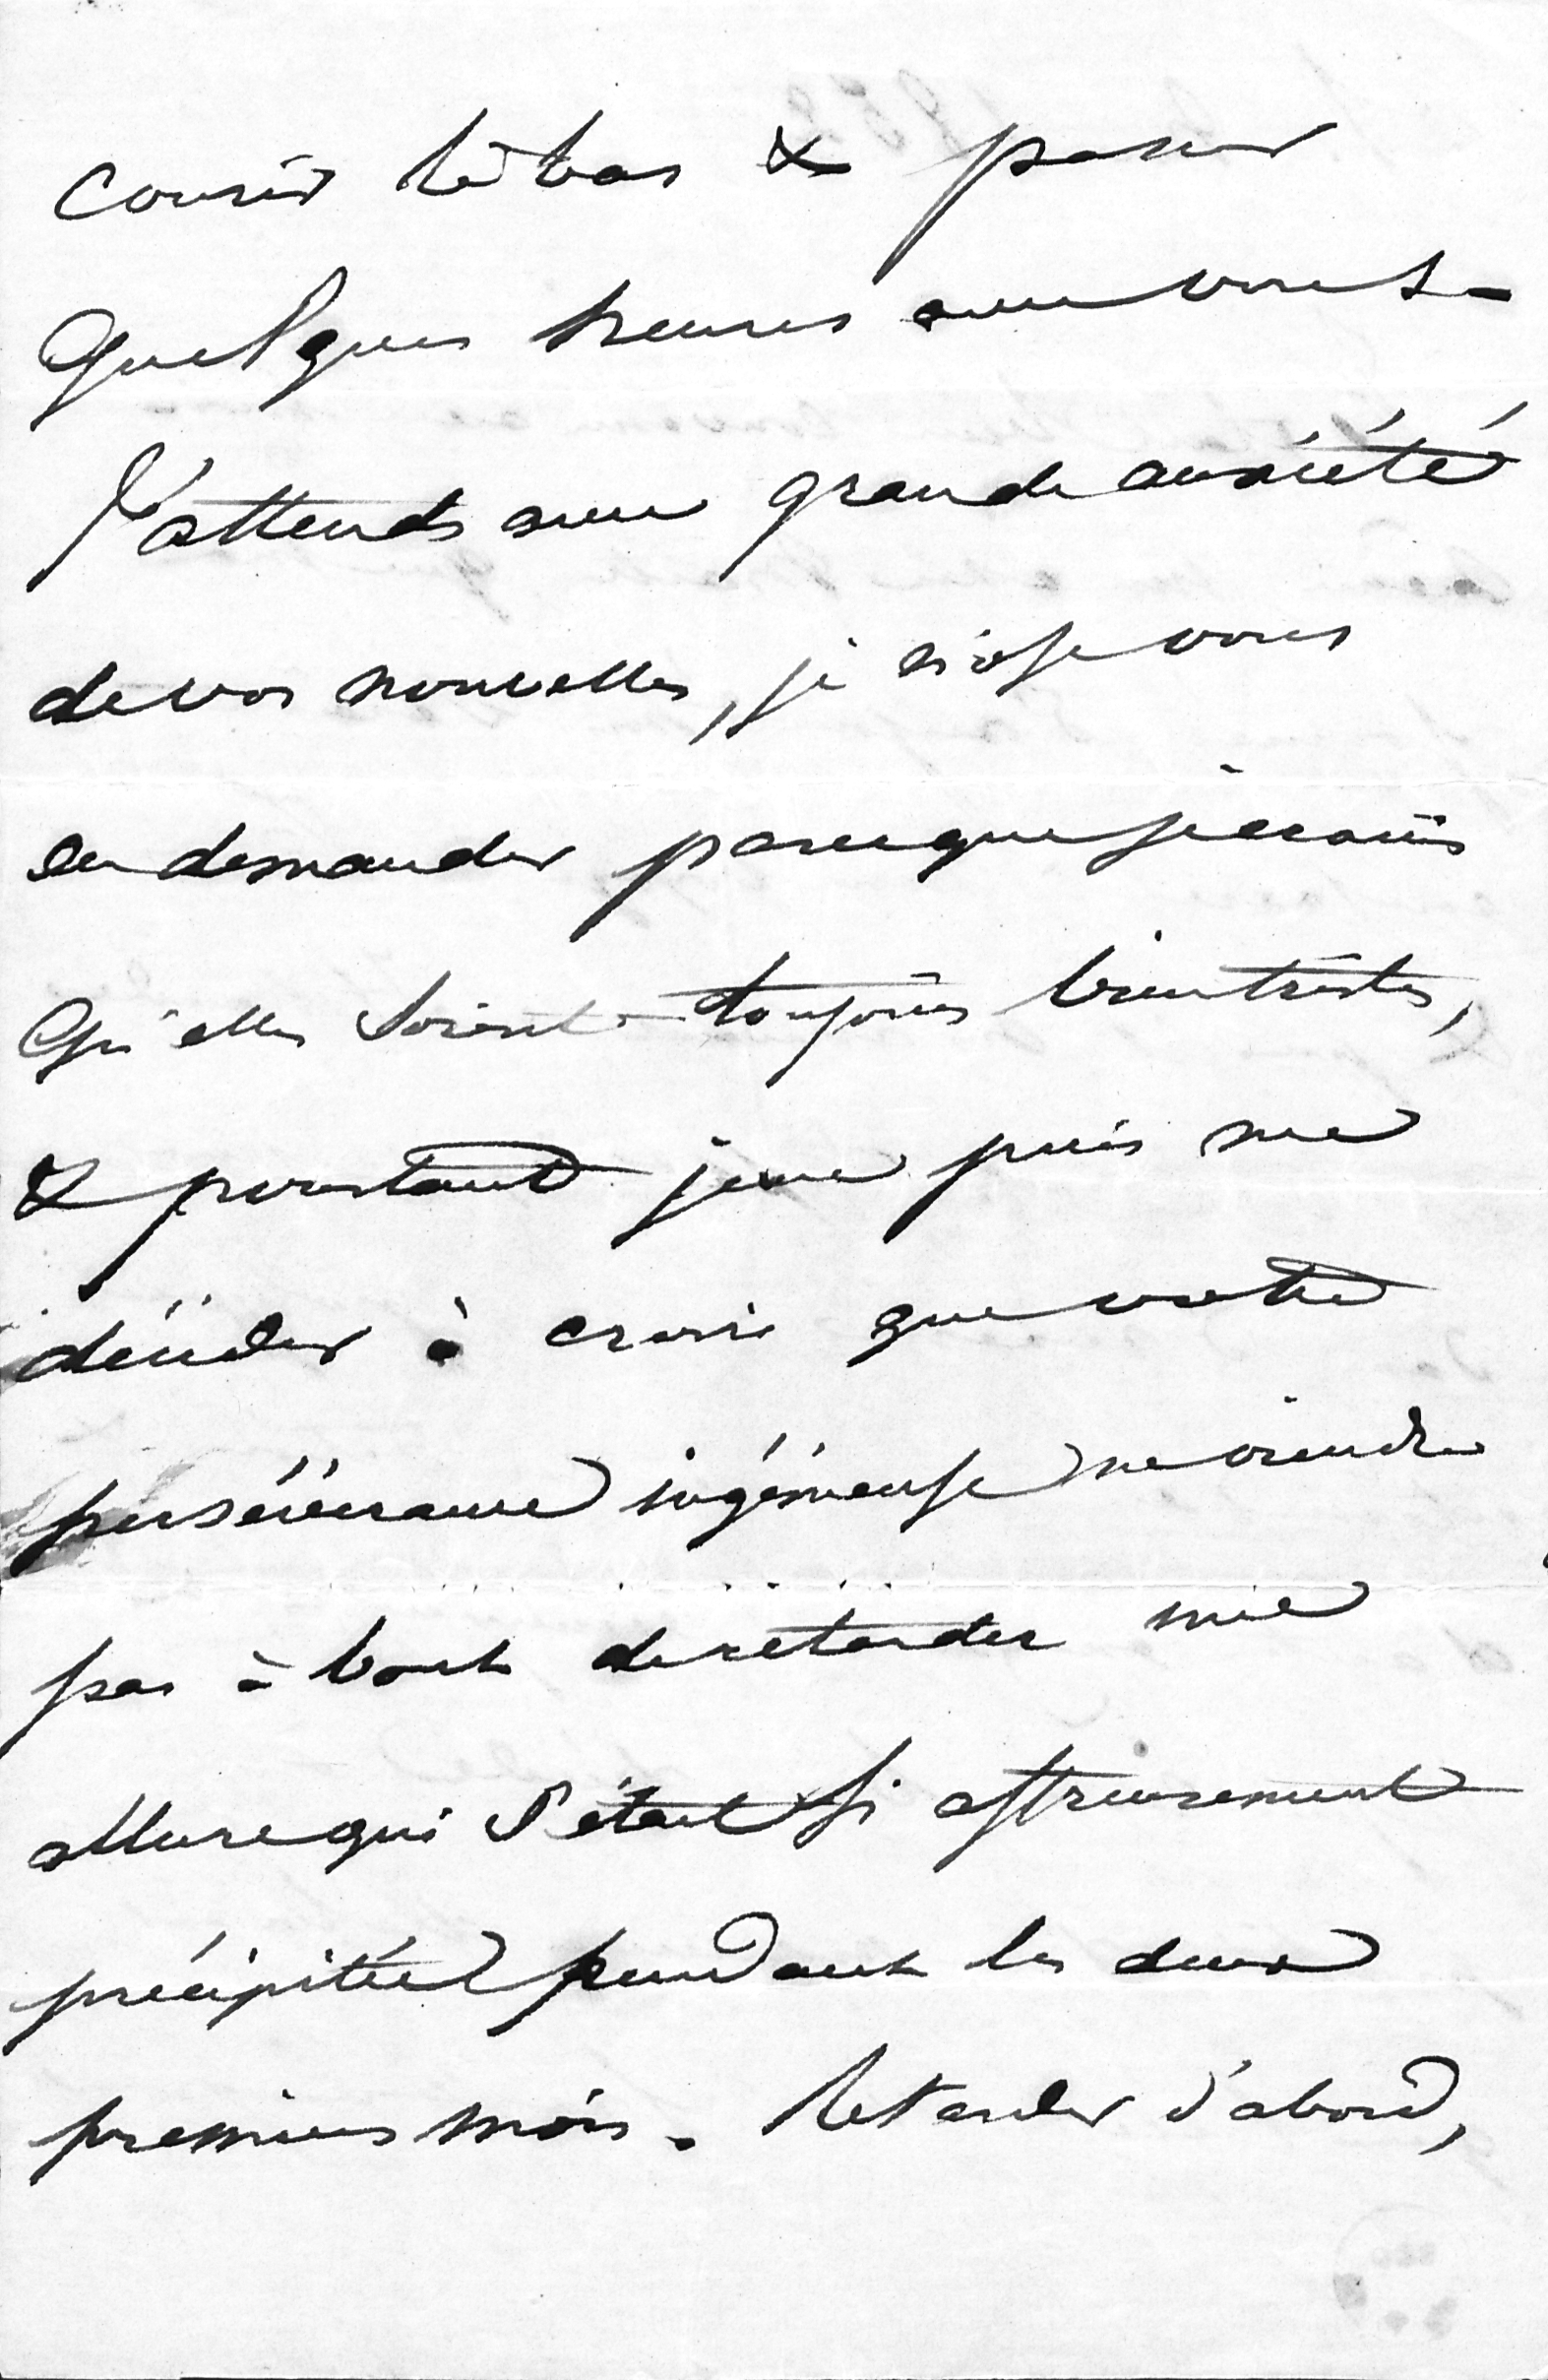 courir là bas & passer
quelques heures avec vous.
J'attends avec grande anxiété
de vos nouvelles, je n'ose vous
en demander parceque je crains
qu'elles soient toujours bien tristes,
& pourtant je ne puis me
décider à croire que votre
persévérance ingénieuse ne viendra
pas à bout de retarder une
allure qui s'était si affreusement
précipitée pendant les deux
premiers mois. Retarder d'abord,